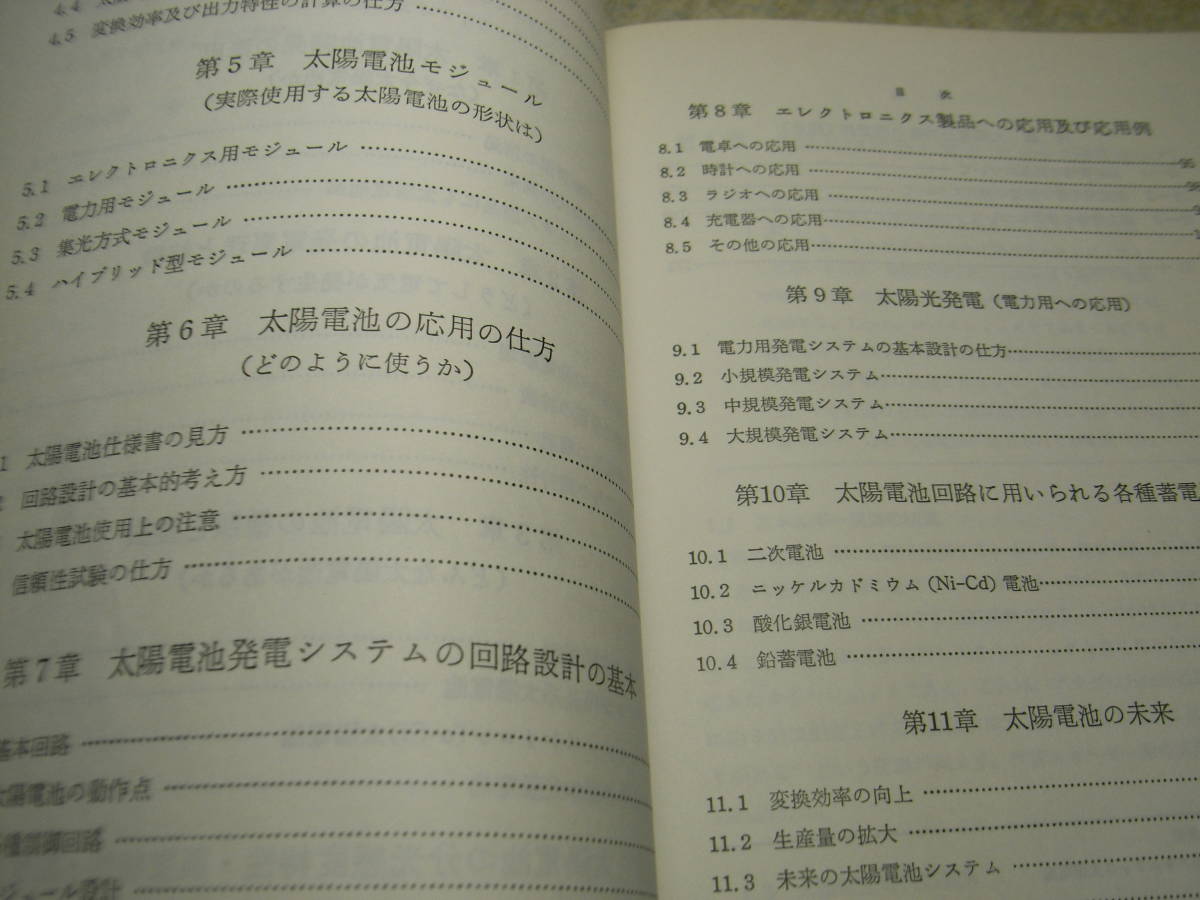 4.4
4.5 変換効率及び出力特性の計算の仕方
第5章 太陽電池モジュール
(実際使用する太陽電池の形状は)
5.1 エレクトロニクス用モジュール
5.2 電力用モジュール
5.3 集光方式モジュール
5.4 ハイブリッド型モジュール
第6章 太陽電池の応用の仕方
(どのように使うか)
太陽電池仕様書の見方
回路設計の基本的考え方
太陽電池使用上の注意
信頼性試験の仕方
第7章 太陽電池発電システムの回路設計の基本
基本回路
太陽電池の動作点
種制御回路
ジュール設計
目次
第8章 エレクトロニクス製品への応用及び応用例
8.1 電卓への応用
8.2 時計への応用
8.3 ラジオへの応用
8.4 充電器への応用
8.5 その他の応用
第9章 太陽光発電(電力用への応用)
9.1 電力用発電システムの基本設計の仕方
9.2 小規模発電システム
9.3 中規模発電システム
9.4 大規模発電システム
第10章 太陽電池回路に用いられる各種蓄電
10.1 二次電池
10.2 ニッケルカドミウム(Ni-Cd)電池
10.3 酸化銀電池
10.4 鉛蓄電池
第11章 太陽電池の未来
11.1 変換効率の向上
11.2 生産量の拡大
11.3 未来の太陽電池システム